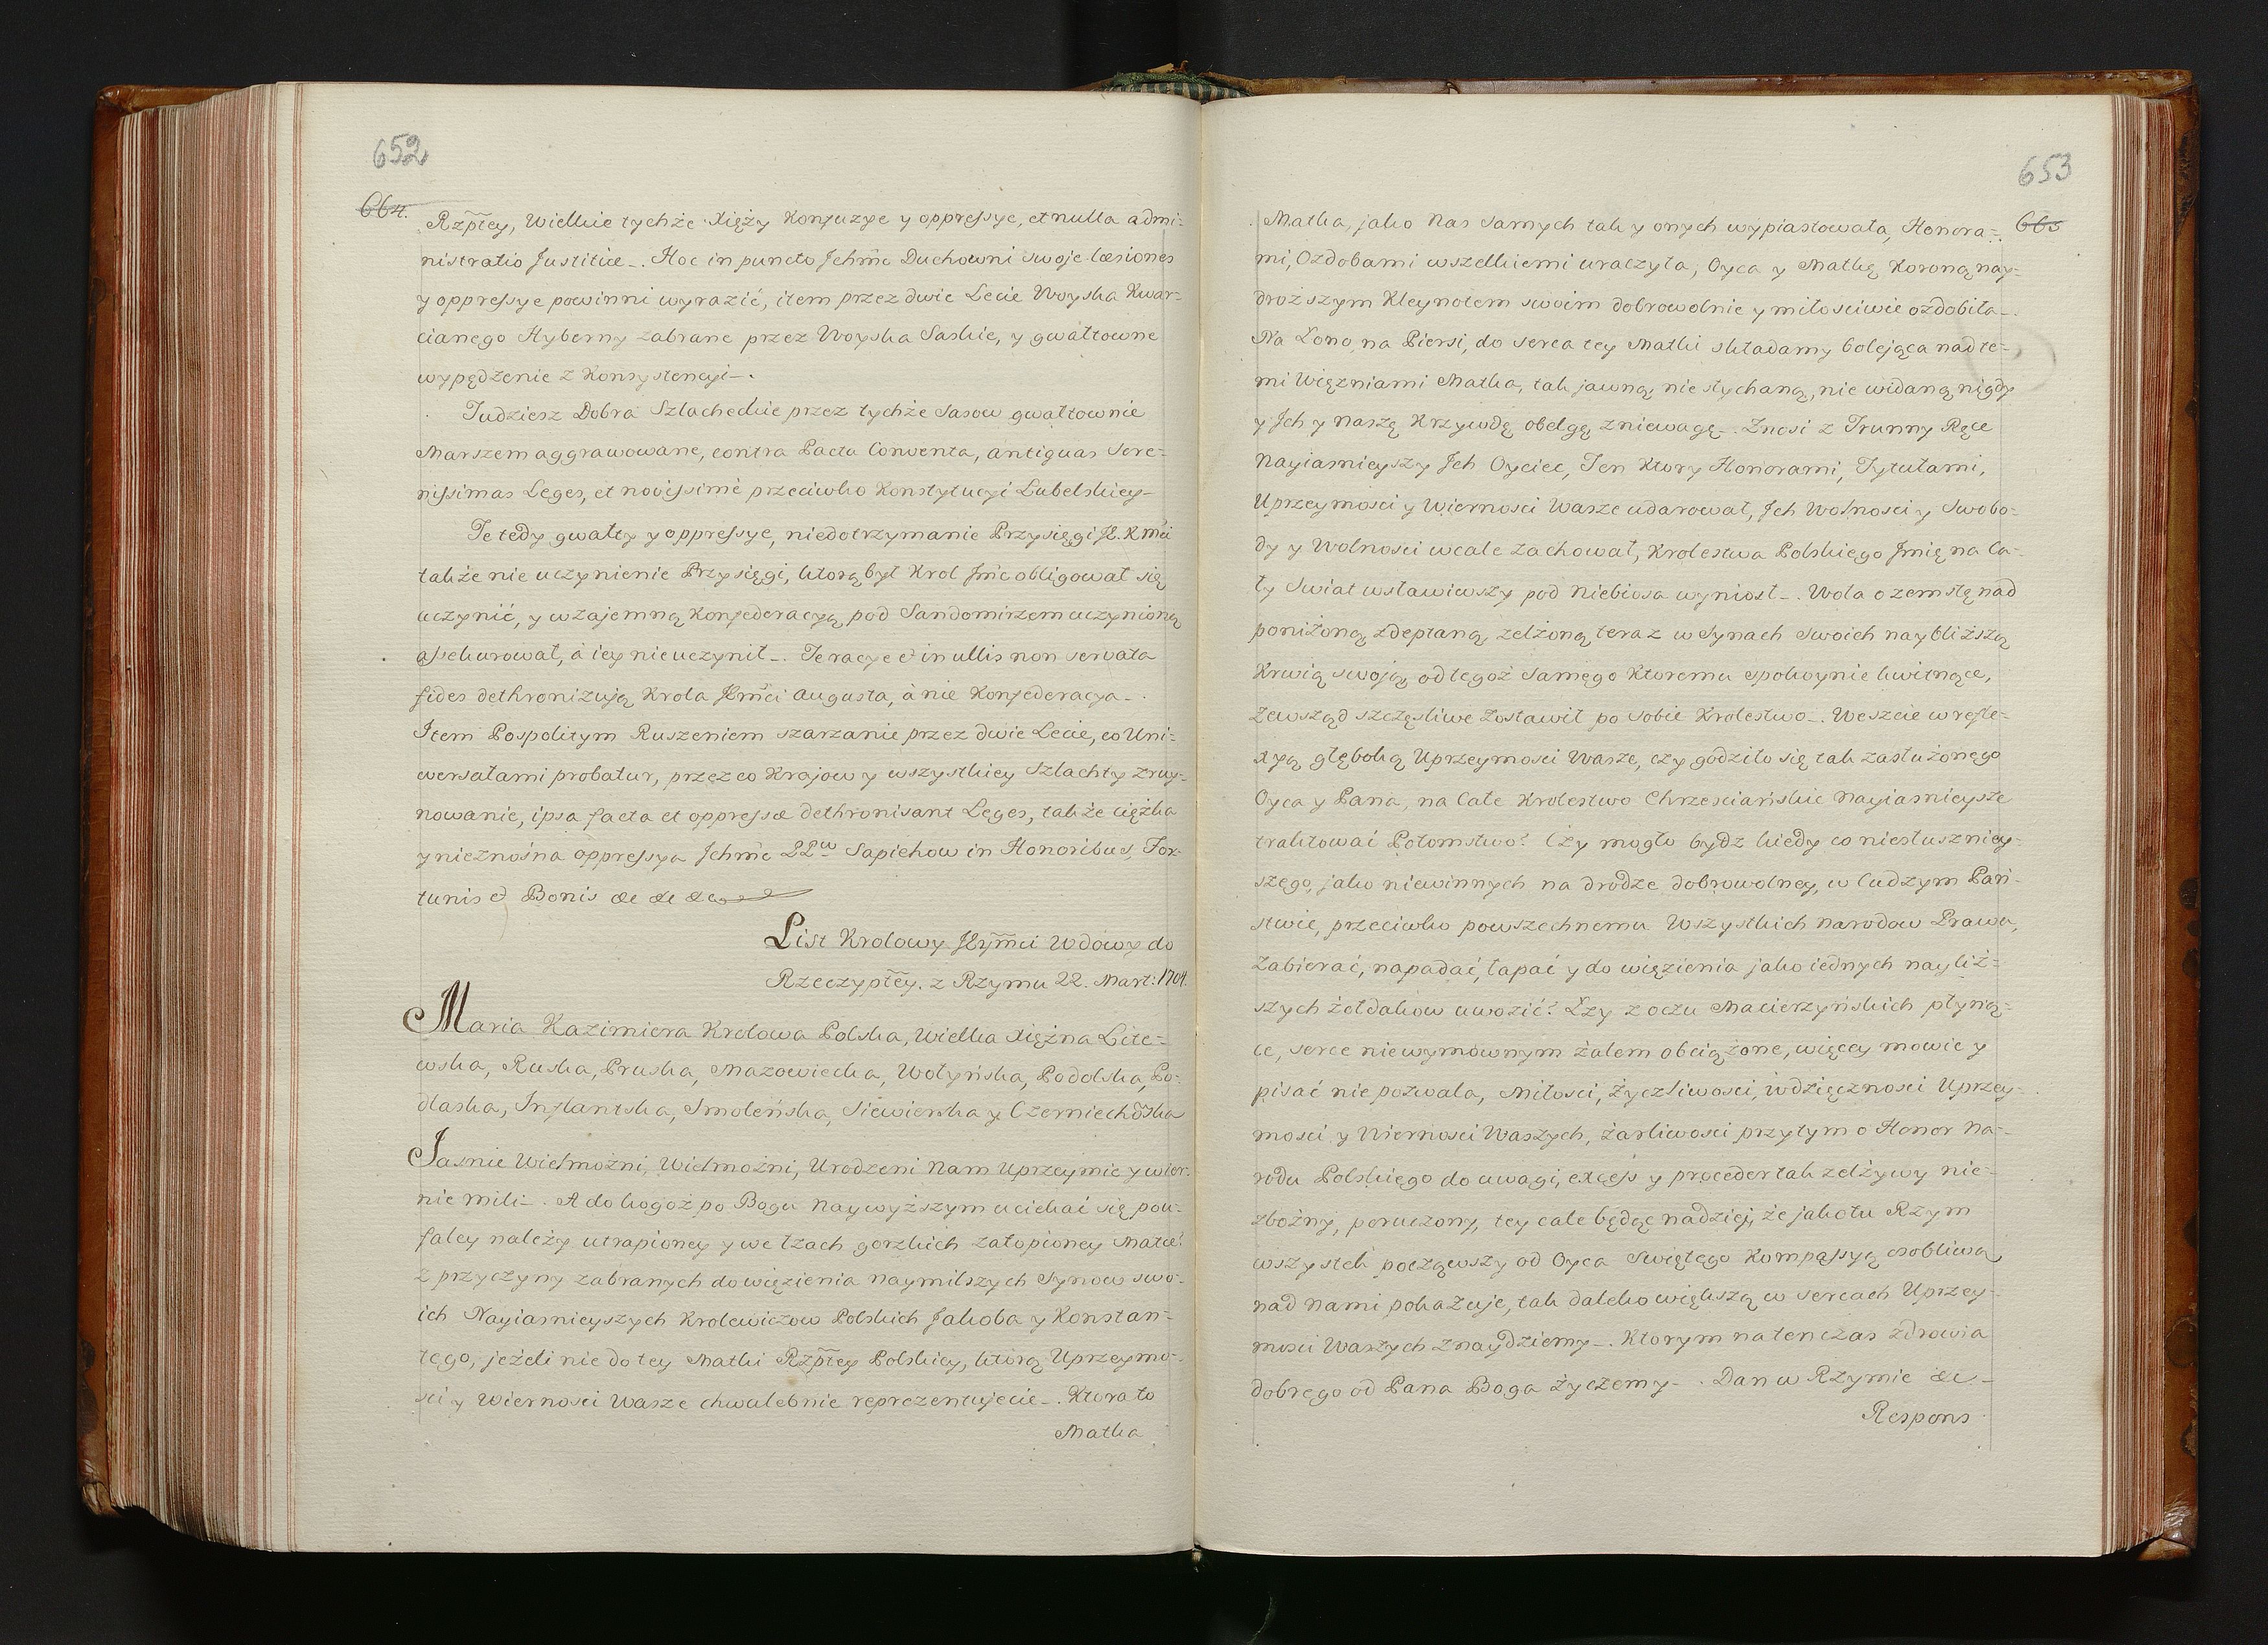 652
664.
Rzp̃tey, Wielkie tychże Xięży Konfuzye y oppressye, et nulla admi-
nistratio Justitiæ_. Hoc in puncto Jchm̃c Duchowni swoje læsiones
y oppressye powinni wyrazić, item przez dwie Lecie Woyska Kwar-
cianego Hyberny zabrane przez Woyska Saskie, y gwałtowne
wypędzenie z Konsystencyi_.
Tudziesz Dobra Szlacheckie przez tychże Sasow gwałtownie
Marszem aggrawowane, contra Pacta Conventa, antiquas Sere-
nissimas Leges, et novissimè przeciwko Konstytucyi Lubelskiey_
Te tedy gwałty y oppressye, niedotrzymanie Przysięgi J. K mći
także nie uczynienie Przysięgi, którą był Krol Jm̃c obligował się
uczynić, y wzajemną Konfederacyą pod Sandomirzem uczynioną
assekurował, à iey nie uczynił_. Te racye & in ullis non servata
fides dethronizują Krola Jkmći Augusta, à nie Konfederacya_.
Item Pospolitym Ruszeniem szarzanie przez dwie Lecie, co Uni-
wersałami probatur, przez co Krajow y wszystkiey Szlachty zruy-
nowanie, ipsa facta et oppressæ dethronisant Leges, także ciężka
y nieznośna oppressya Jchm̃c PPw Sapiehow in Honoribus, For-
tunis & Bonis &c &c &c
List Krolowy Jkym̃ci Wdowy do
Rzeczyp̃tey. z Rzymu 22. Mart: 1704.
Maria Kazimiera Krolowa Polska, Wielka Xiężna Lite-
wska, Ruska, Pruska, Mazowiecka, Wołyńska, Podolska, Po-
dlaska, Inflantska, Smoleńska, Siewierska y Czerniechowska
Jasnie Wielmożni, Wielmożni, Urodzeni Nam Uprzeymie y wier-
nie mili_. A do kogoż po Bogu Naywyższym uciekać się pou-
faley należy utrapioney y we łzach gorzkich zatopioney Matce?
z przyczyny zabranych do więzienia naymilszych Synow swo-
ich Nayiasnieyszych Krolewiczow Polskich Jakoba y Konstan-
tego, jeżeli nie do tey Matki Rzp̃tey Polskiey, którą Uprzeymo-
sci y Wiernosci Wasze chwalebnie reprezentujecie_. Ktora to
Matka
653
665
Matka, jako Nas samych tak y onych wypiastowała, Honora-
mi, Ozdobami wszelkiemi uraczyła, Oyca y Matkę Koroną nay-
droższym Kleynotem swoim dobrowolnie y miłosciwie ozdobiła_.
Na Łono, na Piersi, do serca tey Matki składamy bolejąca nad te-
mi Więzniami Matka, tak jawną, nie słychaną, nie widaną nigdy
y Jch y Naszę Krzywdę obelgę zniewagę_. Znosi z Trunny Ręce
Nayiasnieyszy Jch Oyciec, Ten Ktory Honorami, Tytułami,
Uprzeymosci y Wiernosci Wasze udarował, Jch Wolnosci y Swobo-
dy y Wolnosci wcale zachował, Krolestwa Polskiego Jmię na Ca-
ły Swiat wsławiwszy pod Niebiosa wyniosł_. Woła o zemstę nad
poniżoną zdeptaną, zelżoną teraz w Synach swoich naybliższą
Krwią swoją, od tegoż samego Ktoremu spokoynie kwitnące,
Zewsząd szczęsliwe zostawił po sobie Krolestwo_. Weszcie w refle-
xyą głęboką Uprzeymosci Wasze, czy godziło się tak zasłużonego
Oyca y Pana, na Całe Krolestwo Chrzesciańskie Nayiasnieysze
traktować Potomstwo? Czy mogło bydz kiedy co niesłuszniey-
szego, jako niewinnych na drodze dobrowolney, w Cudzym Pań-
stwie, przeciwko powszechnemu Wszystkich Narodow Prawu,
Zabierać, napadać, łapać y do więzienia jako iednych nayliż-
szych żołdakow uwozić? Łzy z oczu Macierzyńskich płyną-
ce, serce niewymownym żalem obciążone, więcey mowic y
pisać nie pozwala, Miłosci, Życzliwosci, wdzięcznosci Uprzey-
mosci y Wiernosci Waszych, żarliwosci przytym o Honor Na-
rodu Polskiego do uwagi, excess y proceder tak zelżywy nie-
zbożny, poruczony, tey cale będąc nadziej, że jako tu Rzym
wszystek począwszy od Oyca Swiętego Kompassyą osobliwą
nad nami pokazuje, tak daleko większą w sercach Uprzey-
mosci Waszych znaydziemy_. Ktorym na tenczas zdrowia
dobrego od Pana Boga życzemy_. Dan w Rzymie &c_
Respons